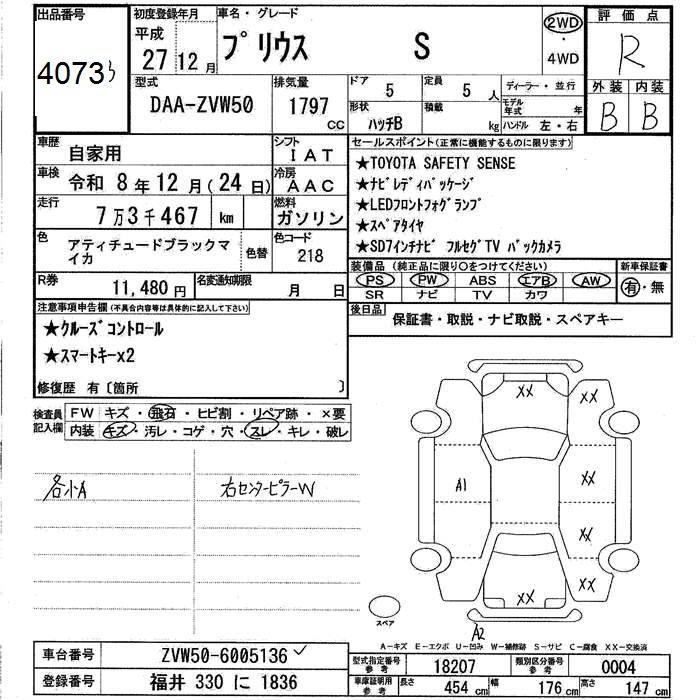 出品番号 初度登録年月 車名・グレード 評価点
4073
平成 27年 12月 プリウス S 2WD・4WD R
型式 排気量 ドア 5 定員 5人 ディーラー・並行 外装 内装
DAA-ZVW50 1797 CC 形状 ハッチB 積載 kg モデル年式 年 B B
ハンドル 左・右
車歴 自家用 シフト IAT セールスポイント(正常に機能するものに限ります)
車検 令和 8年 12月(24日) 冷房 AAC ★TOYOTA SAFETY SENSE
★ナビレディパッケージ
走行 7万3千467 km 燃料 ガソリン ★LEDフロントフォグランプ
★スペアタイヤ
色 アティチュードブラックマイカ 色替 色コード 218 ★SD7インチナビ フルセグTV バックカメラ
装備品(純正品に限り○をつけてください) 新車保証書
R券 11,480円 名変通知期限 月 日 PS PW ABS エアB AW 有・無
SR ナビ TV カワ
注意事項申告欄(不具合内容等は具体的に記入して下さい) 後日品 保証書・取説・ナビ取説・スペアキー
★クルーズコントロール
★スマートキーx2
修復歴 有〔箇所 〕
検査員記入欄 FW キズ・飛石・ヒビ割・リペア跡・×要
内装 キズ・汚レ・コゲ・穴・スレ・キレ・破レ
各小A 右センターピラーW
XX XX
A1 XX
XX
XX XX
スペア A2
A-キズ E-エクボ U-凹み W-補修跡 S-サビ C-腐食 XX-交換済
車台番号 ZVW50-6005136 型式指定番号 参考 18207 類別区分番号 参考 0004
登録番号 福井 330 に 1836 車庫証明用 参考 長さ 454 cm 幅 176 cm 高さ 147 cm